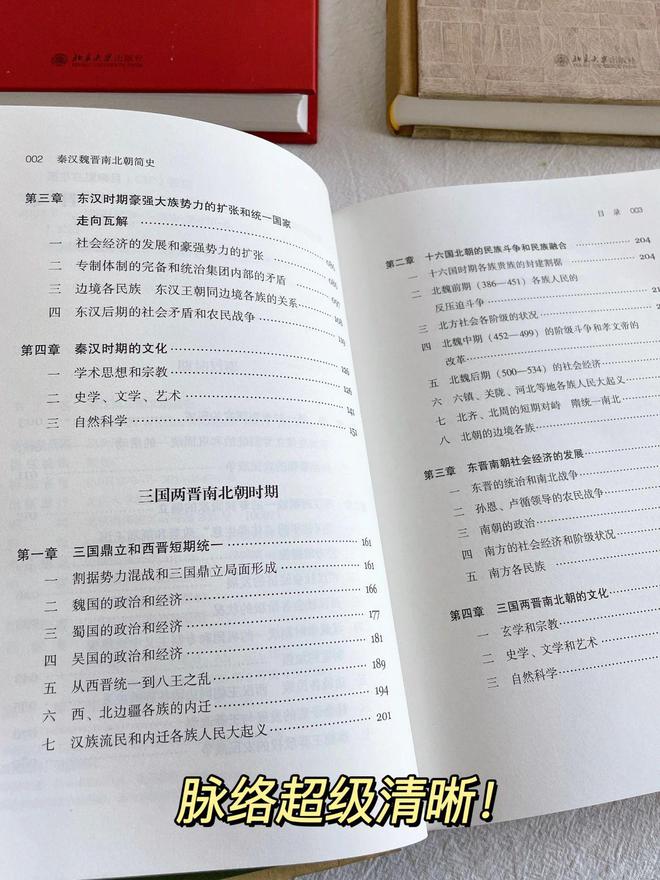 北京大学出版社
北京大学出版社
002 秦汉魏晋南北朝简史
第三章 东汉时期豪强大族势力的扩张和统一国家
走向瓦解
一 社会经济的发展和豪强势力的扩张
二 专制体制的完备和统治集团内部的矛盾
三 边境各民族 东汉王朝同边境各族的关系
四 东汉后期的社会矛盾和农民战争
第四章 秦汉时期的文化 126
一 学术思想和宗教 126
二 史学、文学、艺术 141
三 自然科学 151
三国两晋南北朝时期
第一章 三国鼎立和西晋短期统一 161
一 割据势力混战和三国鼎立局面形成 161
二 魏国的政治和经济 166
三 蜀国的政治和经济 177
四 吴国的政治和经济 181
五 从西晋统一到八王之乱 189
六 西、北边疆各族的内迁 194
七 汉族流民和内迁各族人民大起义 201
目 录 003
第二章 十六国北朝的民族斗争和民族融合 204
一 十六国时期各族贵族的封建割据 204
二 北魏前期（386—451）各族人民的
反压迫斗争
三 北方社会各阶级的状况
四 北魏中期（452—499）的阶级斗争和孝文帝的
改革
五 北魏后期（500—534）的社会经济
六 六镇、关陇、河北等地各族人民大起义
七 北齐、北周的短期对峙 隋统一南北
八 北朝的边境各族
第三章 东晋南朝社会经济的发展
一 东晋的统治和南北战争
二 孙恩、卢循领导的农民战争
三 南朝的政治
四 南方的社会经济和阶级状况
五 南方各民族
第四章 三国两晋南北朝的文化
一 玄学和宗教
二 史学、文学和艺术
三 自然科学
脉络超级清晰！